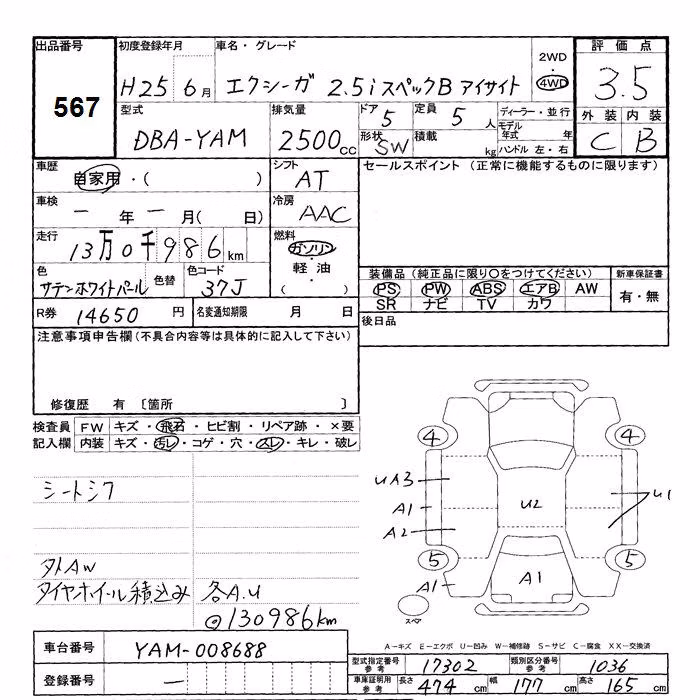 出品番号 初度登録年月 車名・グレード 2WD 評価点
567 H25 6月 エクシーガ 2.5i スペックB アイサイト 4WD 3.5
型式 排気量 ドア 定員 ディーラー・並行 外装 内装
DBA-YAM 2500cc 5 5人 モデル年式 年 C B
形状 SW 積載 kg ハンドル 左・右
車歴 自家用・( ) シフト AT セールスポイント (正常に機能するものに限ります)
車検 ー年ー月( 日) 冷房 AAC
走行 13万0千986km 燃料 ガソリン・軽油・( )
色 サテンホワイトパール 色替 色コード 37J
装備品 (純正品に限り○をつけてください) 新車保証書
PS PW ABS エアB AW 有・無
SR ナビ TV カワ
R券 14650円 名変通知期限 月 日 後日品
注意事項申告欄 (不具合内容等は具体的に記入して下さい)
修復歴 有 〔箇所 〕
検査員 FW キズ・飛石・ヒビ割・リペア跡・×要
記入欄 内装 キズ・汚レ・コゲ・穴・スレ・キレ・破レ
4 4
UA3
シートシワ A1 U2 U1
A2
タトAW 5 5
タイヤホイール積込み 各A.U A1 A1
@130986km スペア
A-キズ E-エクボ U-凹み W-補修跡 S-サビ C-腐食 XX-交換済
車台番号 YAM-008688
型式指定番号 参考 17302 類別区分番号 参考 1036
登録番号 ー 車庫証明用 参考 長さ 474cm 幅 177cm 高さ 165cm